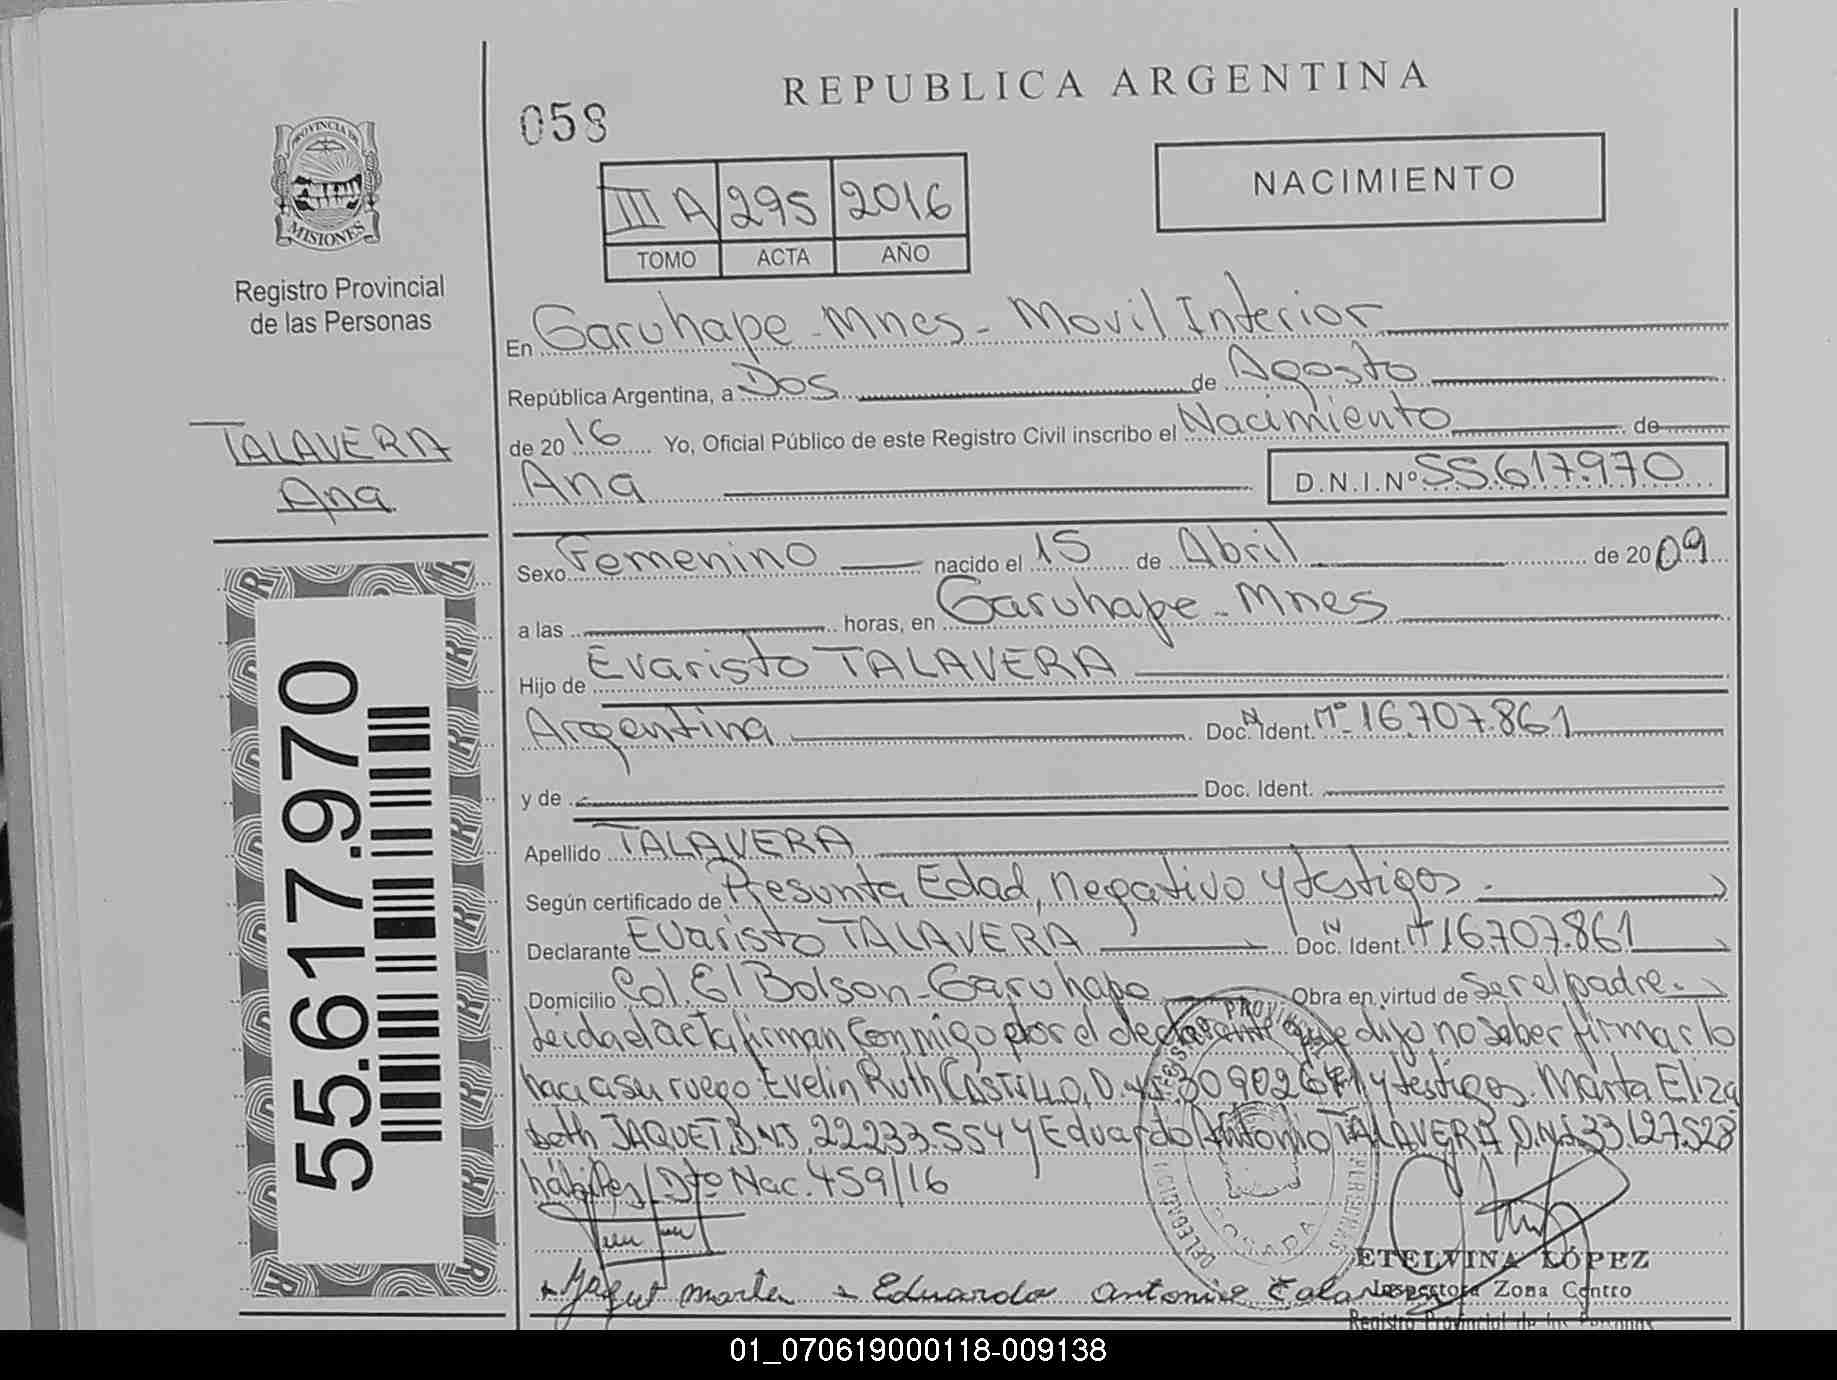 REPUBLICA ARGENTINA
058
NACIMIENTO
III A 295 2016
TOMO ACTA AÑO
PROVINCIA DE
MISIONES
Registro Provincial
de las Personas
TALAVERA
Ana
55.617.970
En Garuhape - Mnes - Movil Interior
República Argentina, a Dos de Agosto
de 2016 Yo, Oficial Público de este Registro Civil inscribo el Nacimiento de
Ana D.N.I.Nº 55.617.970
Sexo Femenino nacido el 15 de Abril de 2009
a las horas, en Garuhape - Mnes
Hijo de Evaristo TALAVERA
Argentina Doc. Ident. Nº 16.707.861
y de Doc. Ident.
Apellido TALAVERA
Según certificado de Presunta Edad, negativo y testigos.
Declarante Evaristo TALAVERA Doc. Ident. 16.707.861
Domicilio Col. El Bolson - Garuhape Obra en virtud de ser el padre.
Leida el acta firman conmigo por el declarante que dijo no saber firmar lo
haci a su ruego Evelin Ruth CASTILLO, D.N.I. y testigos. Marta Eliza
beth JAQUET, D.N.I. 22.233.554 y Eduardo Antonio TALAVERA D.N.I. 33.127.528
hábiles/Dto Nac. 459/16
Jaquet Marta Eduardo Antonio Talavera
ETELVINA LÓPEZ
Inspectora Zona Centro
Registro Provincial de las Personas
01_070619000118-009138